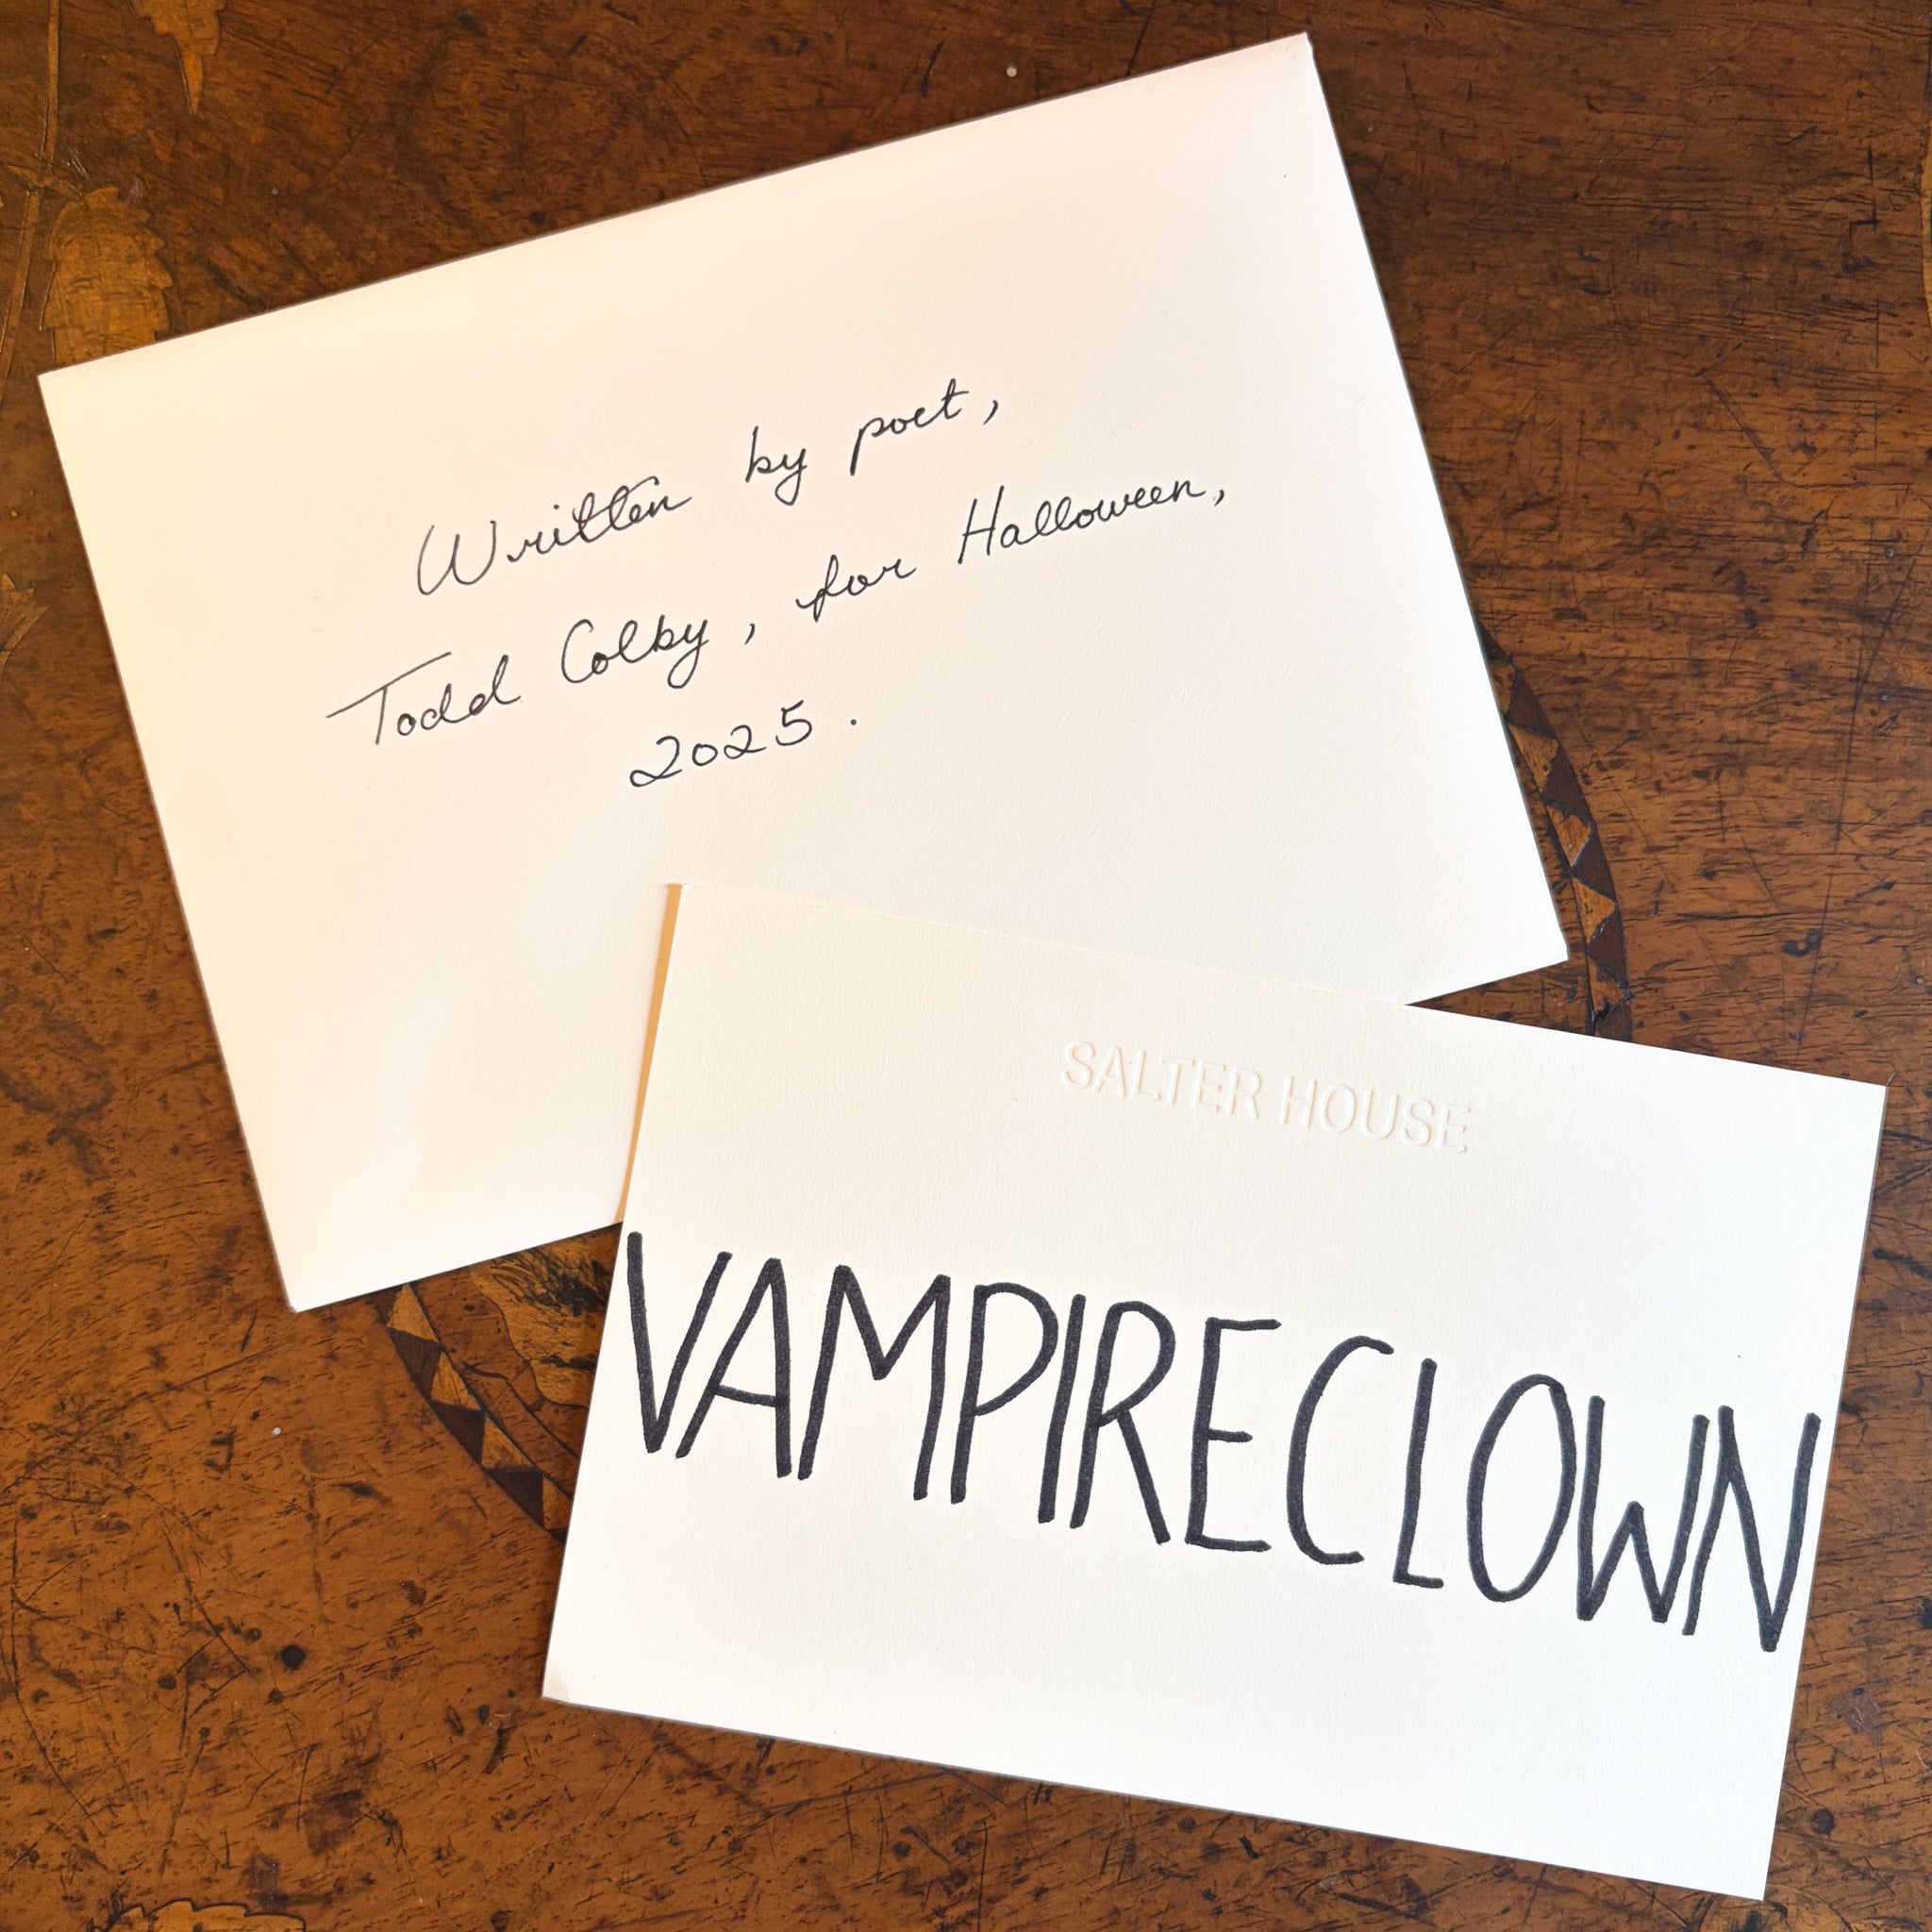 Written by poet,
Todd Colby, for Halloween,
2025.
SALTER HOUSE
VAMPIRECLOWN